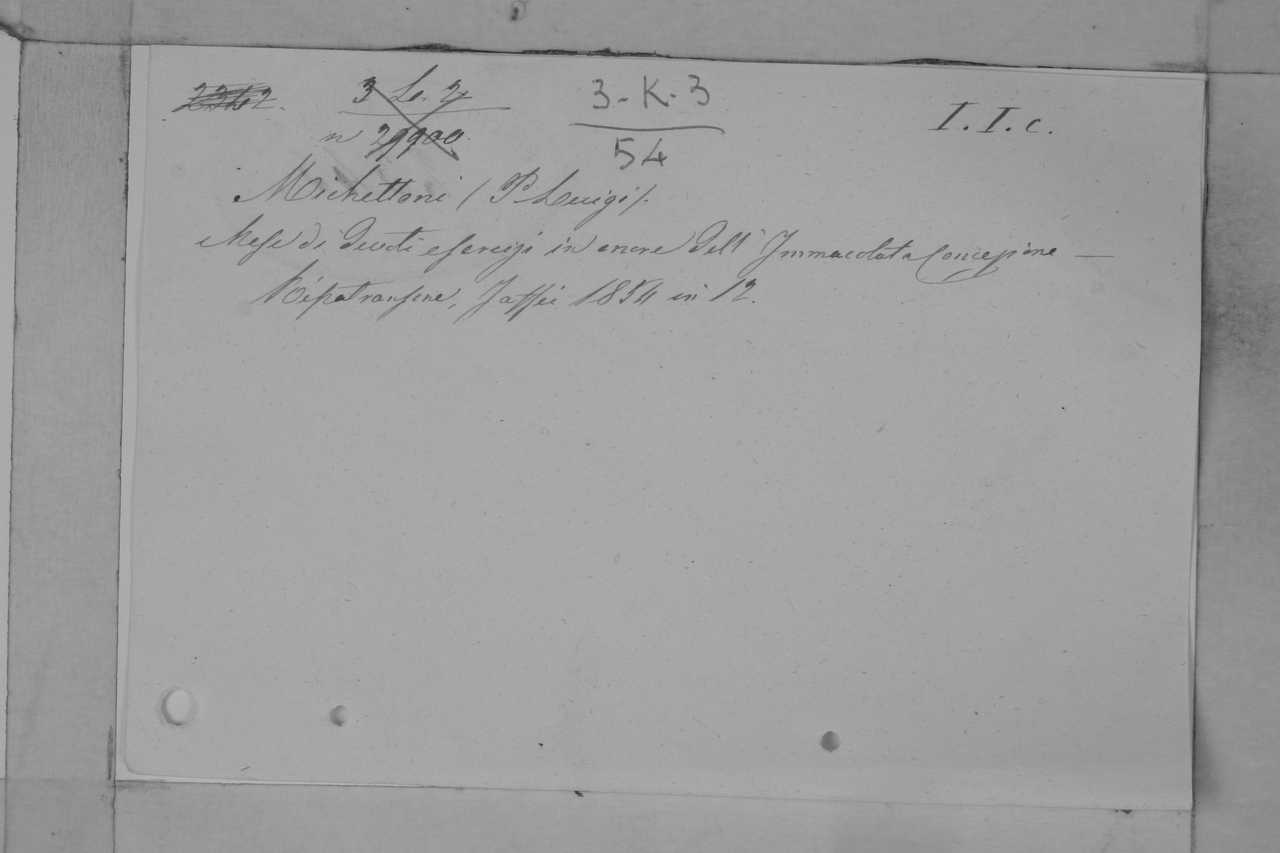 3 L. 2
3-K-3
I.I.c.
n 29900
54
Michettoni (P Luigi).
Mese di devoti esercizi in onore dell' Immacolata Concezione —
Ripatransone, Jaffei 1854 in 12.